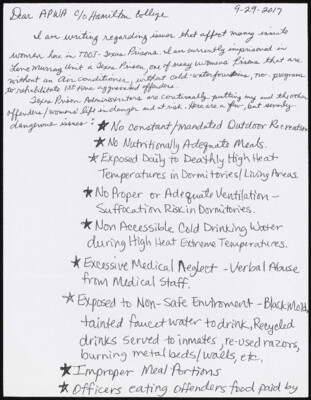 Dear APWA c/o Hamilton College 9-29-2017
I am writing regarding issues that affect many
women here in TDCJ-Texas Prisons. I am currently imprisoned in
Lane Murray Unit a Texas Prison, one of many womens Prisons that are
without an Air conditioner, without cold water fountains, no programs
to rehabilitate 1st time aggravated offenders.
Texas Prison Administrators are continually putting my and the other
offenders/womens life in danger and at risk. Here are a few, but
dangerous issues:
★ No constant/mandated Outdoor Recreation
★ No Nutritionally Adequate Meals.
★ Exposed Daily to Deathly High Heat
Temperatures in Dormitories/Living Areas.
★ No Proper or Adequate Ventilation -
Suffocation Risk in Dormitories.
★ Non Accessible Cold Drinking Water
during High Heat Extreme Temperatures.
★ Excessive Medical Neglect - Verbal Abuse
from Medical Staff.
★ Exposed to Non-Safe Enviroment - Black Mold,
tainted faucet water to drink, Recycled
drinks served to inmates, re-used razors,
burning metal beds/walls, etc.
★ Improper Meal Portions
★ Officers eating offenders food paid by